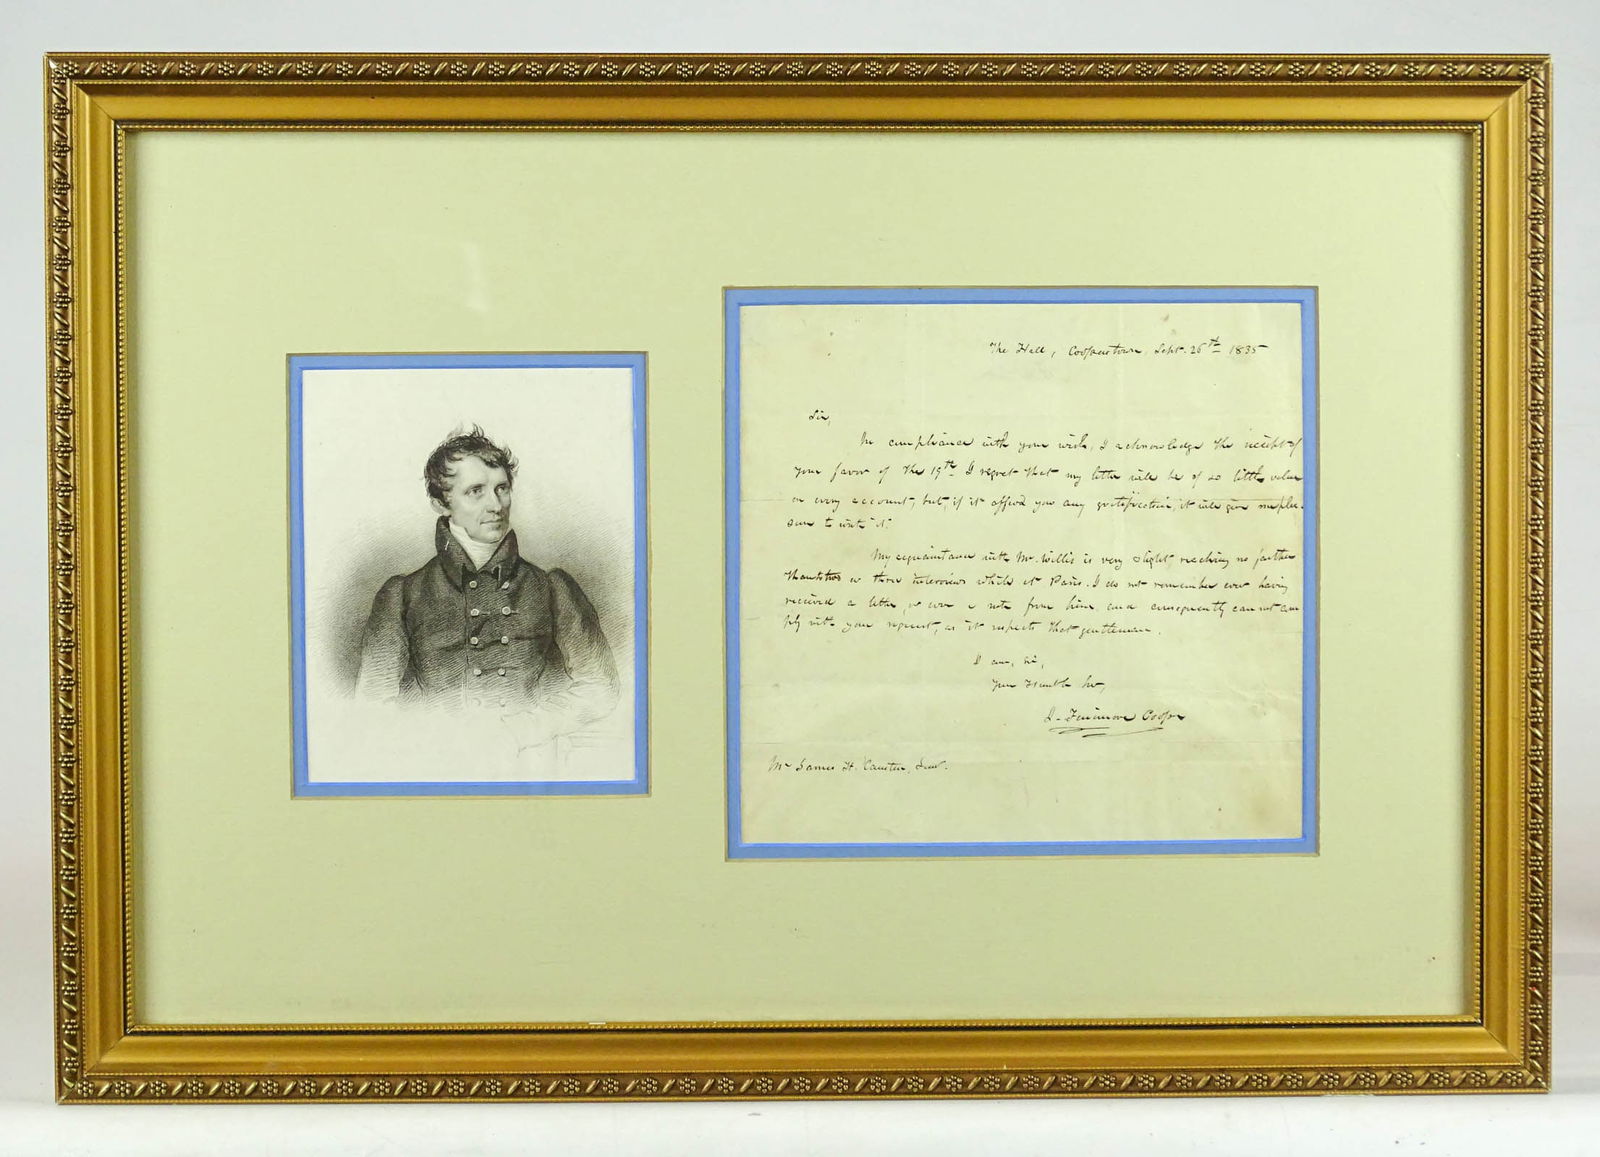 The Hall, Cooperstown, Sept. 26th 1835
Sir,
In compliance with your wish, I acknowledge the receipt of
your favor of the 19th. I regret that my letter will be of so little value
on every account, but, if it afford you any gratification, it will give me plea-
sure to write it.
My acquaintance with Mr. Willis is very slight, reaching no farther
than two or three interviews while at Paris. I do not remember ever having
received a letter, or even a note from him, and consequently can not com
ply with your request, as it respects that gentleman.
I am, Sir,
Your Humble Ser,
J. Fenimore Cooper
Mr James H. Causten, Junr.